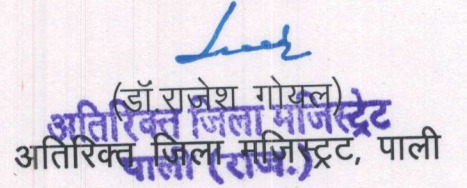 (डॉ.राजेश गोयल)
अतिरिक्त जिला मजिस्ट्रेट
अतिरिक्त जिला मजिस्ट्रट, पाली
पाली (राज.)